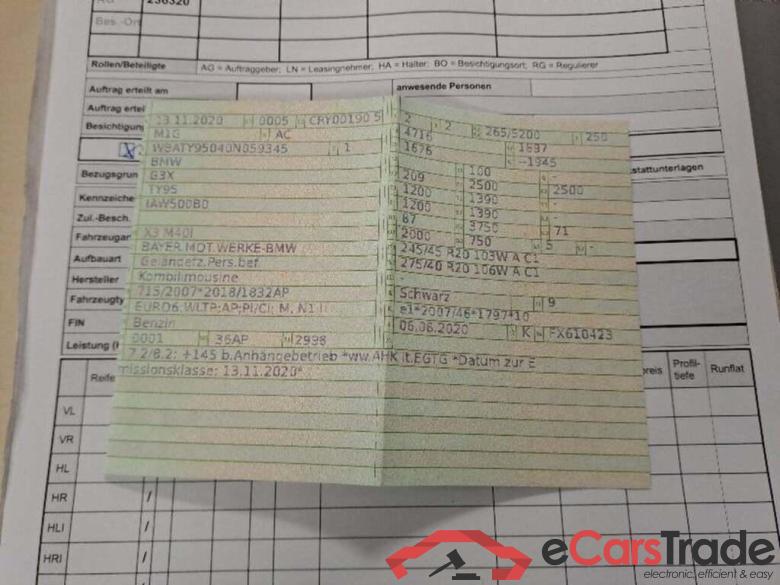 RG 236320
Bes.-Ort
Rollen/Beteiligte AG = Auftraggeber; LN = Leasingnehmer; HA = Halter; BO = Besichtigungsort; RG = Regulierer
Auftrag erteilt am anwesende Personen
Auftrag erteil
Besichtigun
13.11.2020 0005 CRY00190 5
M1G AC
W9ATY95040N059345 1
BMW
G3X
TY95
IAW500B0
X3 M40I
BAYER.MOT.WERKE-BMW
Geländefz.Pers.bef.
Kombilimousine
715/2007*2018/1832AP
EURO6;WLTP;AP;PI/CI; M, N1 I
Benzin
0001 36AP 2998
7.2/8.2: +145 b.Anhängebetrieb *ww.AHK lt.EGTG *Datum zur E
missionsklasse: 13.11.2020*
2 2 265/5200 250
4716 1897
1676 --1945
209 100 -
1200 2500 2500
1200 1390 -
87 1390 -
2000 3750 71
750 5 -
245/45 R20 103W A C1
275/40 R20 106W A C1
-
Schwarz 9
e1*2007/46*1797*10
06.08.2020 K FX610423
stattunterlagen
Bezugsgrun
Kennzeiche
Zul.-Besch.
Fahrzeugar
Aufbauart
Hersteller
Fahrzeugty
FIN
Leistung (
Reife reis Profil-tiefe Runflat
VL
VR
HL
HR /
HLI /
HRI /
eCarsTrade
electronic, efficient & easy